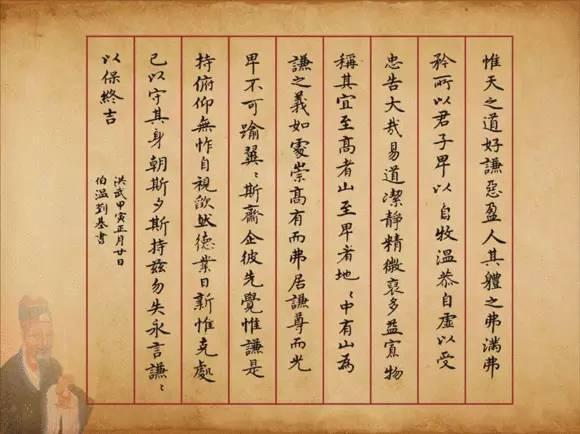 惟天之道好謙惡盈人其體之弗滿弗
矜所以君子卑以自牧溫恭自虛以受
忠告大哉易道潔靜精微裒多益寡物
稱其宜至高者山至卑者地〻中有山為
謙之義如處崇高有而弗居謙尊而光
卑不可踰翼〻斯齋企彼先覺惟謙是
持俯仰無怍自視欿然德業日新惟克處
己以守其身朝斯夕斯持茲勿失永言謙〻
以保終吉
洪武甲寅正月廿日
伯溫劉基書